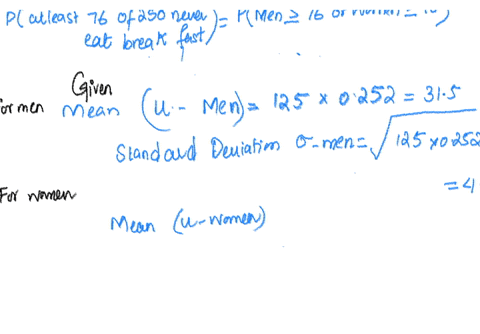 P(atleast 76 of 250 never
eat break fast) = P(Men ≥ 16 or
Given
For men Mean (u - Men) = 125 x 0.252 = 31.5
Standard Deviation σ-men = √125 x 0.252
= 4
For women
Mean (u - women)